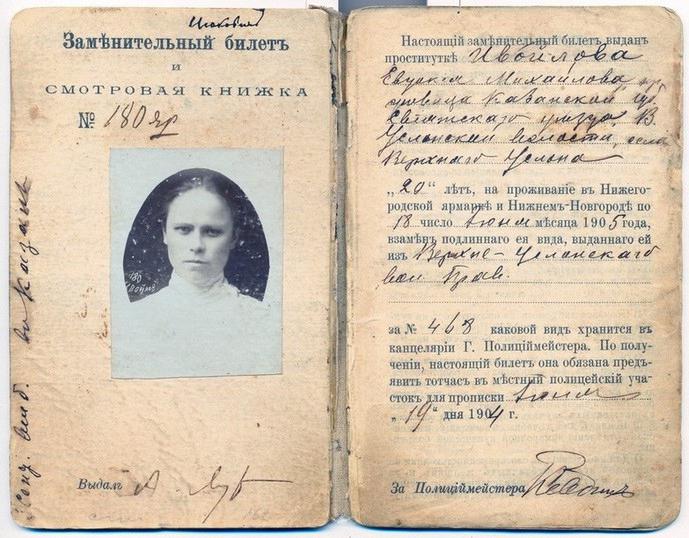 Замѣнительный билетъ
и
СМОТРОВАЯ КНИЖКА
№ 180 яр
180
Выдалъ
Настоящій замѣнительный билетъ выданъ
проституткѣ Ивойлова
Евдокія Михайлова кр
Казанской губ.
Свіяжскаго уѣзда, В.
Услонской волости, села
Верхняго Услона
„20“ лѣтъ, на проживаніе въ Нижего-
родской ярмаркѣ и Нижнемъ-Новгородѣ по
18 число Іюня мѣсяца 1905 года,
взамѣнъ подлиннаго ея вида, выданнаго ей
изъ Верхне-Услонскаго
вол. Прав.
за № 468 каковой видъ хранится въ
канцеляріи Г. Полиціймейстера. По полу-
ченіи, настоящій билетъ она обязана предъ-
явить тотчасъ въ мѣстный полицейскій уча-
стокъ для прописки Іюня
„19“ дня 1904 г.
За Полиціймейстера